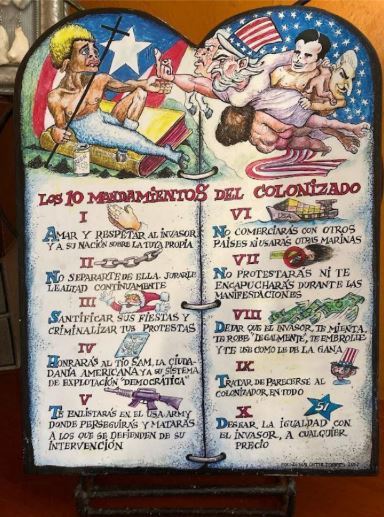 LOS 10 MANDAMIENTOS DEL COLONIZADO
I
AMAR Y RESPETAR AL INVASOR
Y A SU NACIÓN SOBRE LA TUYA PROPIA
II
NO SEPARARTE DE ELLA. JURARLE
LEALTAD CONTINUAMENTE
III
SANTIFICAR SUS FIESTAS Y
CRIMINALIZAR TUS PROTESTAS
IV
HONRARÁS AL TÍO SAM, LA CIUDA-
DANÍA AMERICANA Y A SU SISTEMA
DE EXPLOTACIÓN "DEMOCRÁTICA"
V
TE ENLISTARÁS EN EL USA ARMY
DONDE PERSEGUIRÁS Y MATARÁS
A LOS QUE SE DEFIENDEN DE SU
INTERVENCIÓN
VI
USA
NO COMERCIARÁS CON OTROS
PAÍSES NI USARÁS OTRAS MARINAS
VII
NO PROTESTARÁS NI TE
ENCAPUCHARÁS DURANTE LAS
MANIFESTACIONES
VIII
DEJAR QUE EL INVASOR, TE MIENTA,
TE ROBE "LEGALMENTE", TE EMBROLLE
Y TE USE COMO LE DE LA GANA
IX
TRATAR DE PARECERSE AL
COLONIZADOR EN TODO
X
51
DESEAR LA IGUALDAD CON
EL INVASOR, A CUALQUIER
PRECIO